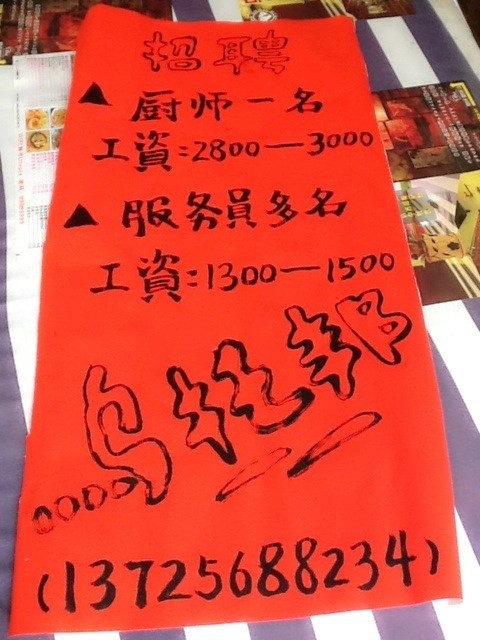 招聘
▲ 厨师一名
工資:2800—3000
▲ 服务員多名
工資:1300—1500
乌托邦
(13725688234)